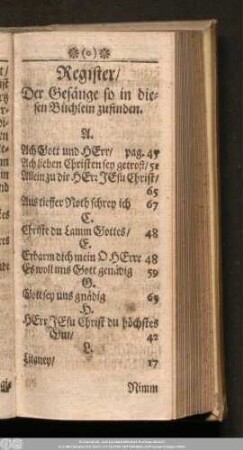 (o)
Register/
Der Gesänge so in die-
sen Büchlein zufinden.
A.
Ach Gott und HErr/ pag. 47
Ach lieben Christen sey getrost/ 51
Allein zu dir HErr JEsu Christ/
65
Aus tieffer Noth schrey ich 67
C.
Christe du Lamm Gottes/ 48
E.
Erbarm dich mein O HErre 48
Es woll uns Gott genädig 59
G.
Gott sey uns gnädig 69
H.
HErr JEsu Christ du höchstes
Gut/ 42
L.
Litaney/ 17
Nimm